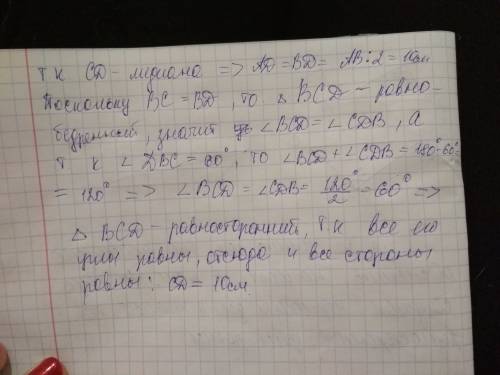 т к CD - медиана => AD = BD = AB : 2 = 10см
Поскольку BC = BD, то △ BCD - равно-
бедренный, значит ∠BCD = ∠CDB, а
т к ∠DBC = 60°, то ∠BCD + ∠CDB = 180°-60°
= 120° => ∠BCD = ∠CDB = 120°/2 = 60° =>
△ BCD - равносторонний, т.к все его
углы равны, отсюда и все стороны
равны: CD = 10см